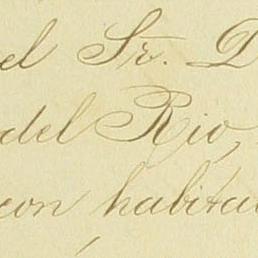 el Sr. D
del Rio,
con habita